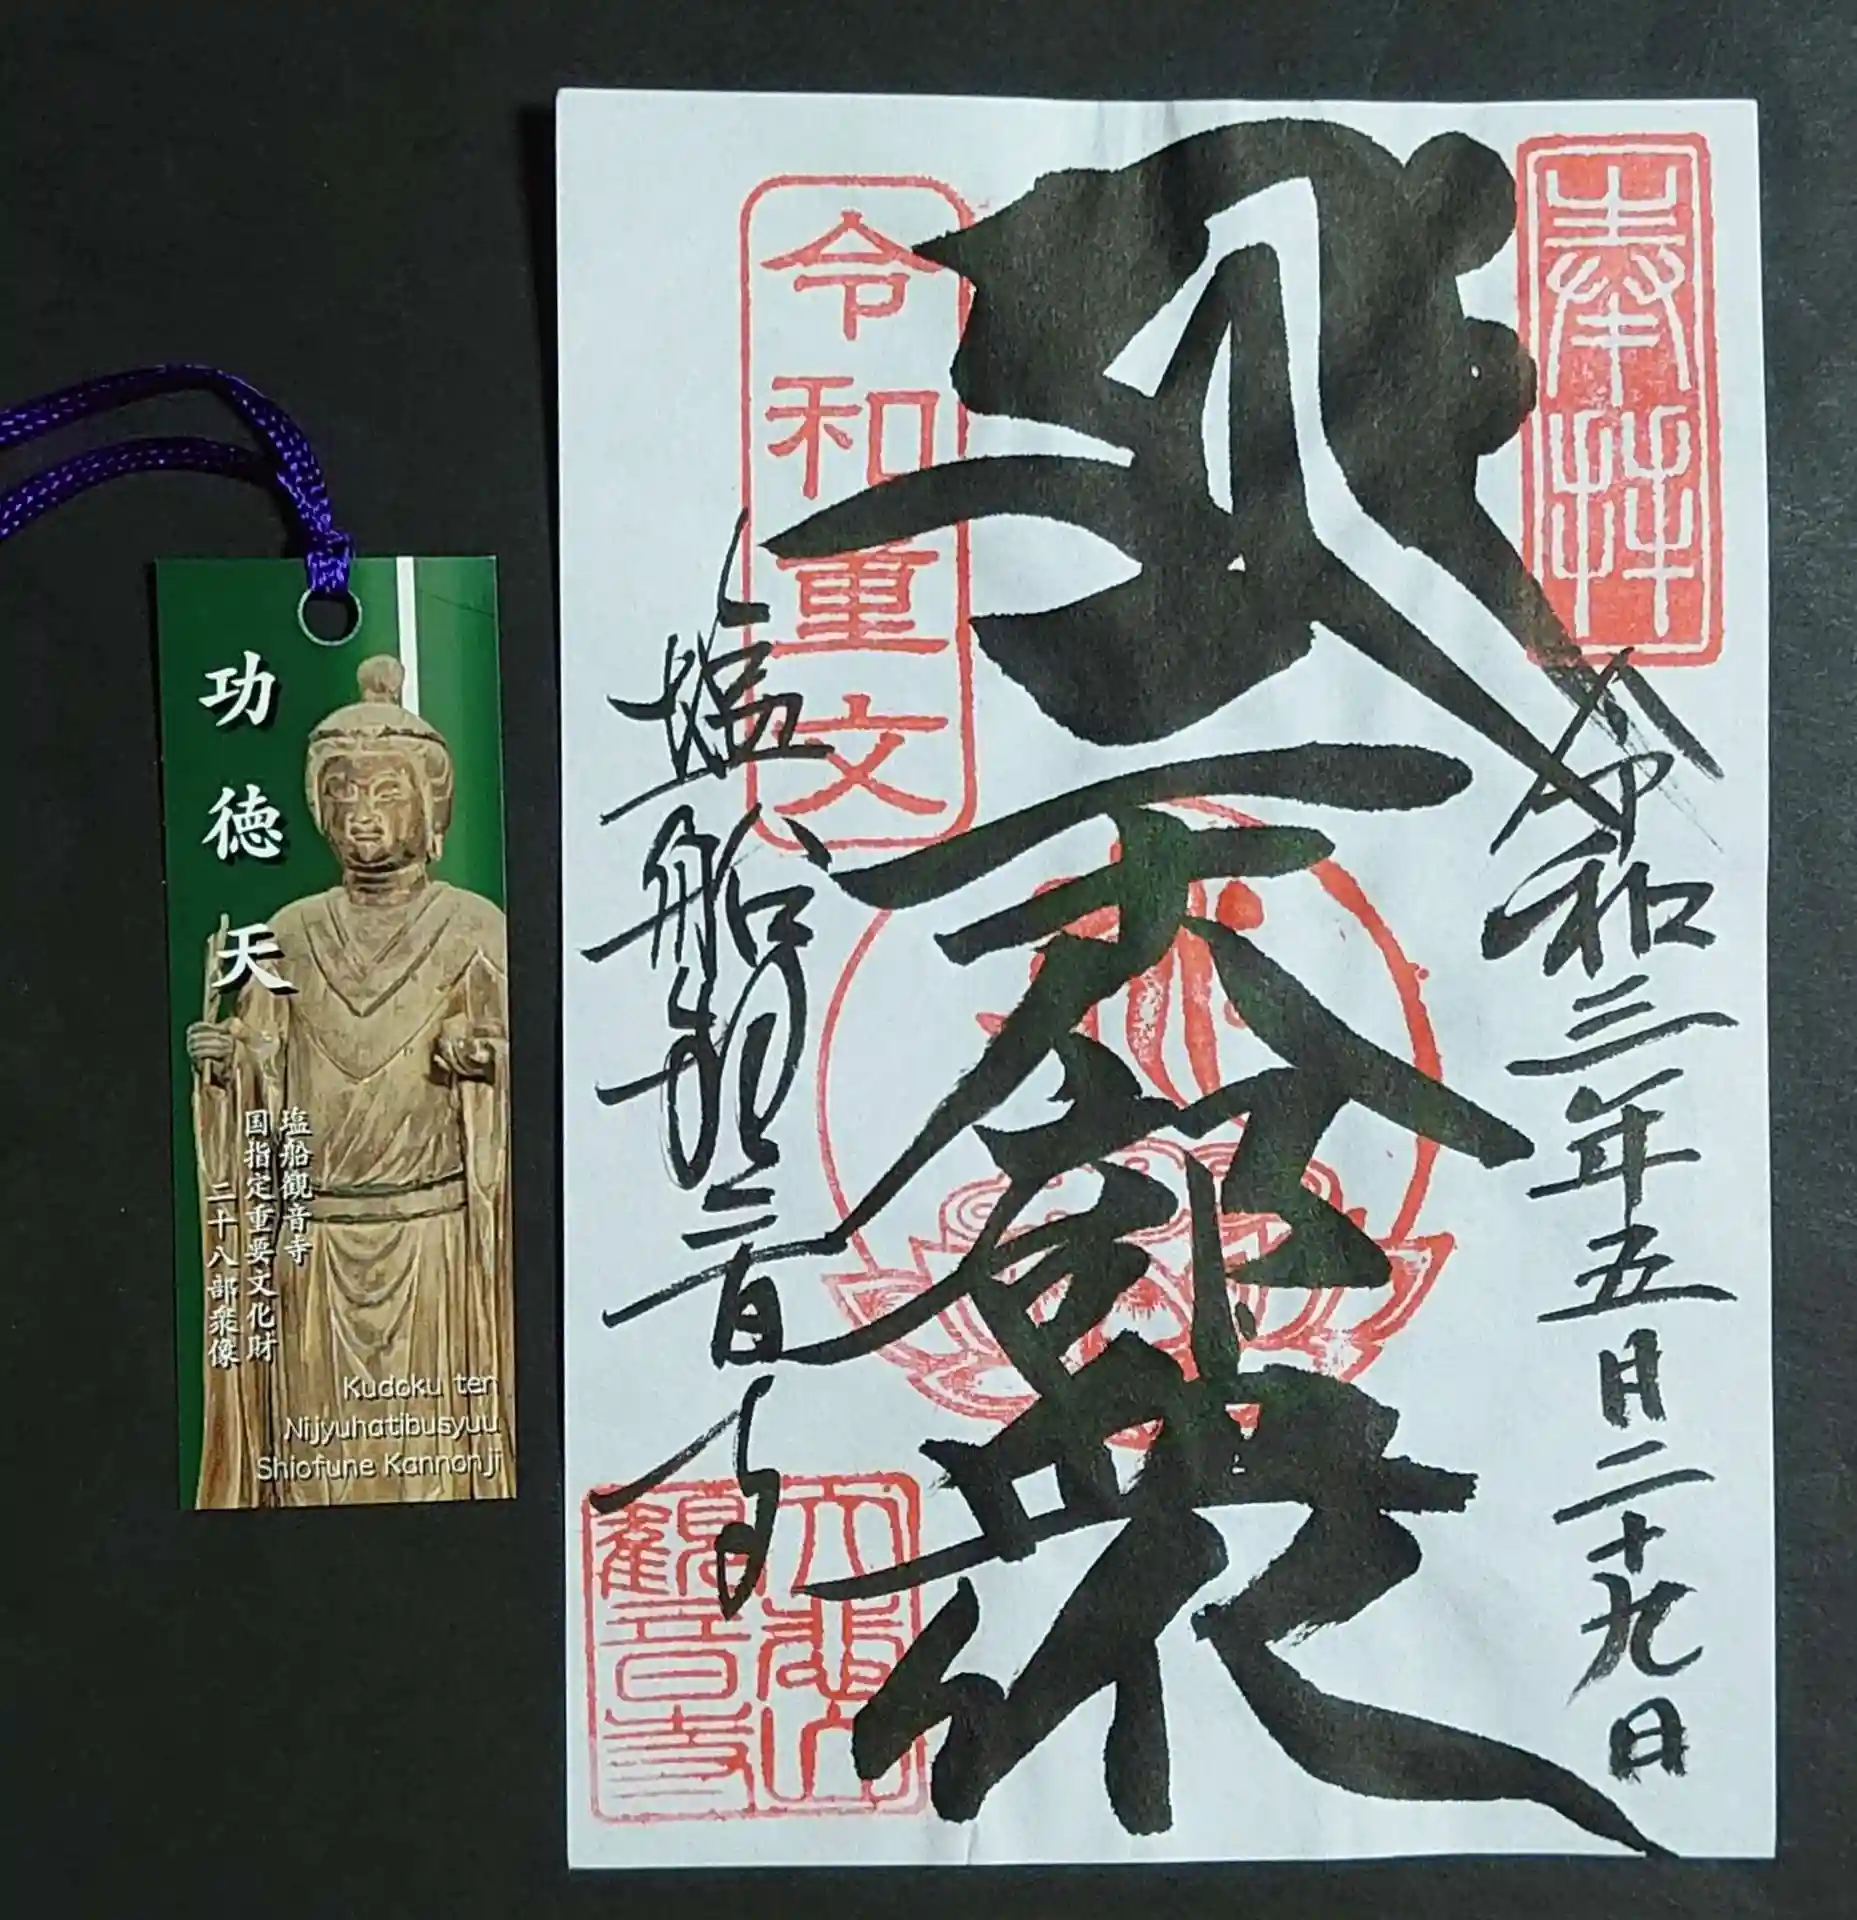 功徳天
塩船觀音寺
国指定重要文化財
二十八部衆像
Kudoku ten
Nijyuhatibusyuu
Shiofune Kannonji
奉拝
令和三年五月二十九日
天部衆
令和重文
塩船観音寺
大悲山
觀音寺